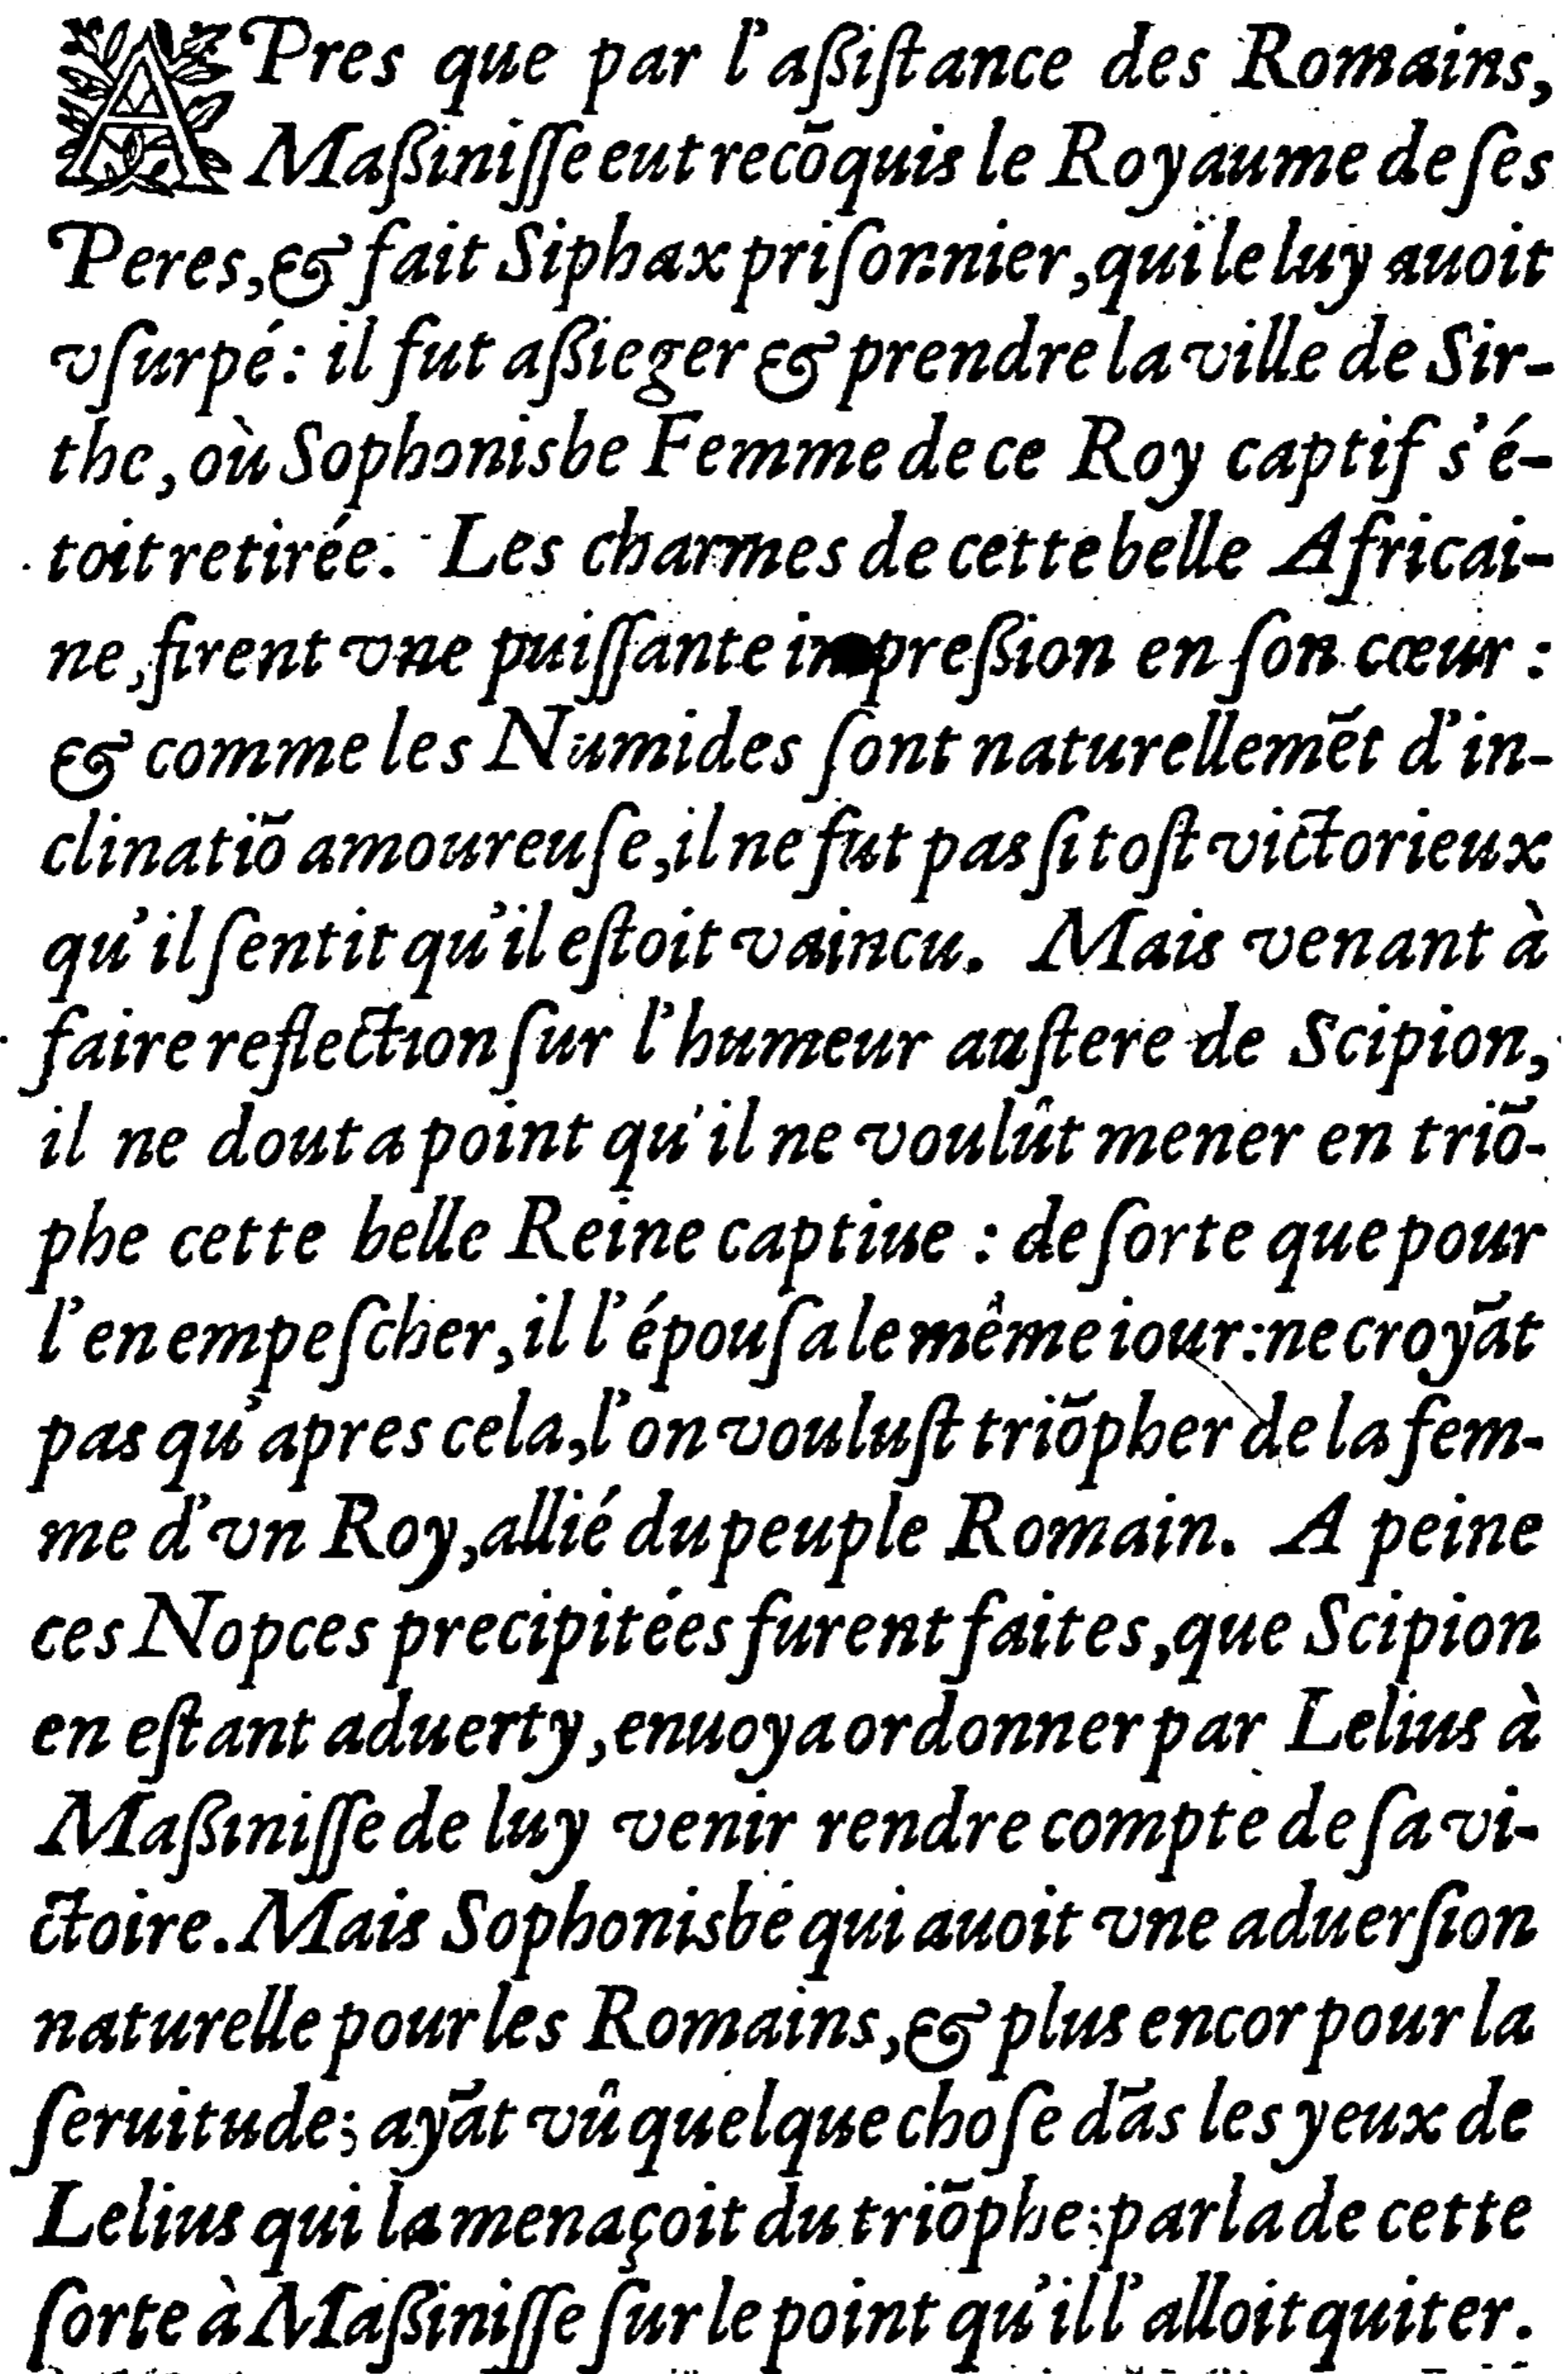 APres que par l'aßiſtance des Romains,
Maßiniſſe eut recõquis le Royaume de ſes
Peres, & fait Siphax priſonnier, qui le luy auoit
vſurpé : il fut aßieger & prendre la ville de Sir-
the, où Sophonisbe Femme de ce Roy captif s'é-
toit retirée. Les charmes de cette belle Africai-
ne, firent vne puiſſante impreßion en ſon cœur :
& comme les Numides ſont naturellemẽt d'in-
clinatiõ amoureuſe, il ne fut pas ſi toſt victorieux
qu'il ſentit qu'il eſtoit vaincu. Mais venant à
faire reflection ſur l'humeur auſtere de Scipion,
il ne douta point qu'il ne voulût mener en triõ-
phe cette belle Reine captiue : de ſorte que pour
l'en empeſcher, il l'épouſa le même iour : ne croyãt
pas qu'apres cela, l'on vouluſt triõpher de la fem-
me d'vn Roy, allié du peuple Romain. A peine
ces Nopces precipitées furent faites, que Scipion
en eſtant aduerty, enuoya ordonner par Lelius à
Maßiniſſe de luy venir rendre compte de ſa vi-
ctoire. Mais Sophonisbe qui auoit vne aduerſion
naturelle pour les Romains, & plus encor pour la
ſeruitude ; ayãt vû quelque choſe dãs les yeux de
Lelius qui la menaçoit du triõphe : parla de cette
ſorte à Maßiniſſe ſur le point qu'il l'alloit quiter.